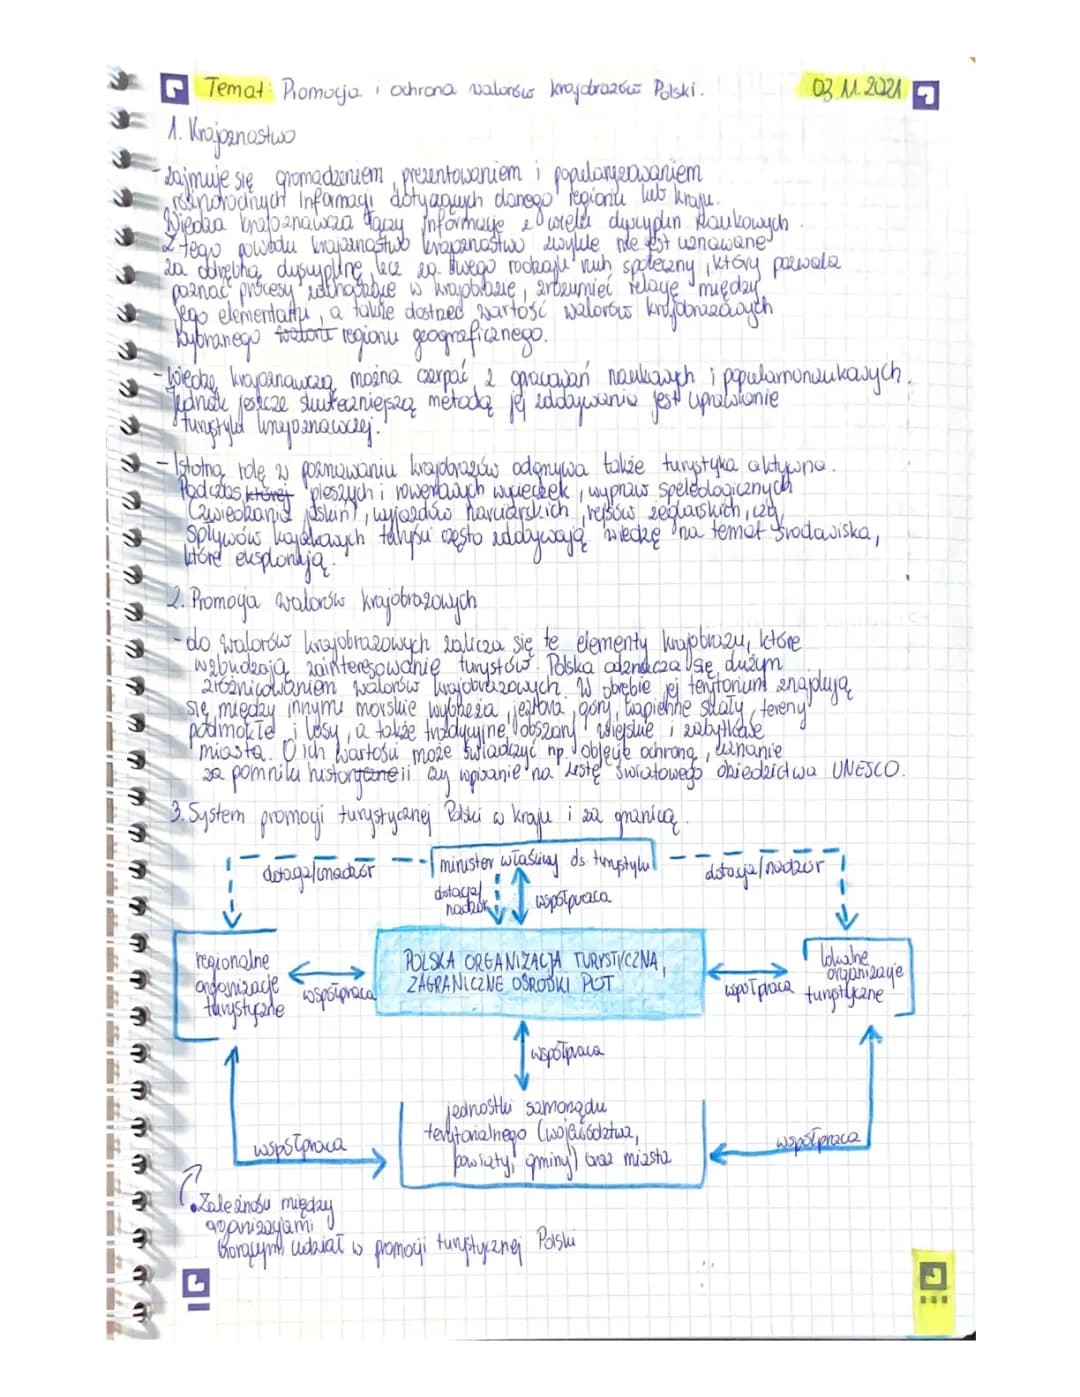 Temat: Promocja i ochrona walorów krajobrazów Polski. 03.11.2021
1. Krajoznastwo
- zajmuje się gromadzeniem, prezentowaniem i popularyzowaniem
różnorodnych informacji dotyczących danego regionu lub kraju.
Wiedza krajoznawcza łączy informacje z wielu dyscyplin naukowych.
Z tego powodu krajoznastwo krajoznastwo zwykle nie jest uznawane
za odrębną dyscyplinę, lecz za swego rodzaju ruch społeczny, który pozwala
poznać procesy zachodzące w krajobrazie, zrozumieć relacje między
jego elementami, a także dostrzec wartość walorów krajobrazowych
wybranego regionu geograficznego.
- Wiedzę krajoznawczą można czerpać z opracowań naukowych i popularnonaukowych.
Jednak jeszcze skuteczniejszą metodą jej zdobywania jest uprawianie
turystyki krajoznawczej.
- Istotną rolę w poznawaniu krajobrazów odgrywa także turystyka aktywna.
Podczas której pieszych i rowerowych wycieczek, wypraw speleologicznych
(zwiedzania jaskiń), wyjazdów narciarskich, rejsów żeglarskich, czy
spływów kajakowych turyści często zdobywają wiedzę na temat środowiska,
które eksplorują.
2. Promocja walorów krajobrazowych
- do walorów krajobrazowych zalicza się te elementy krajobrazu, które
wzbudzają zainteresowanie turystów. Polska odznacza się dużym
zróżnicowaniem walorów krajobrazowych. W obrębie jej terytorium znajdują
się między innymi morskie wybrzeża, jeziora, góry, wapienne skały, tereny
podmokłe i lasy, a także tradycyjne obszary wiejskie i zabytkowe
miasta. O ich wartości może świadczyć np. objęcie ochroną, uznanie
za pomnik historii czy wpisanie na Listę Światowego obiedzictwa UNESCO.
3. System promocji turystycznej Polski w kraju i za granicą.
minister właściwy ds. turystyki
dotacja/nadzór
dotacja/nadzór
dotacja/
nadzór
współpraca
regionalne
organizacje
turystyczne
współpraca
POLSKA ORGANIZACJA TURYSTYCZNA,
ZAGRANICZNE OŚRODKI POT
współpraca
lokalne
organizacje
turystyczne
współpraca
jednostki samorządu
terytorialnego (województwa,
powiaty, gminy) oraz miasta
współpraca
współpraca
• Zależności między
organizacjami
biorącymi udział w promocji turystycznej Polski